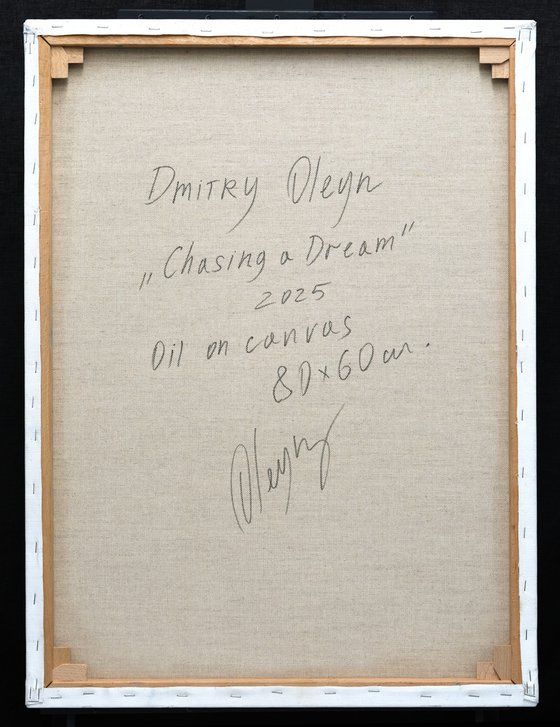 Dmitry Oleyn
„Chasing a Dream"
2025
Oil on canvas
80×60 cm.
Oleyn